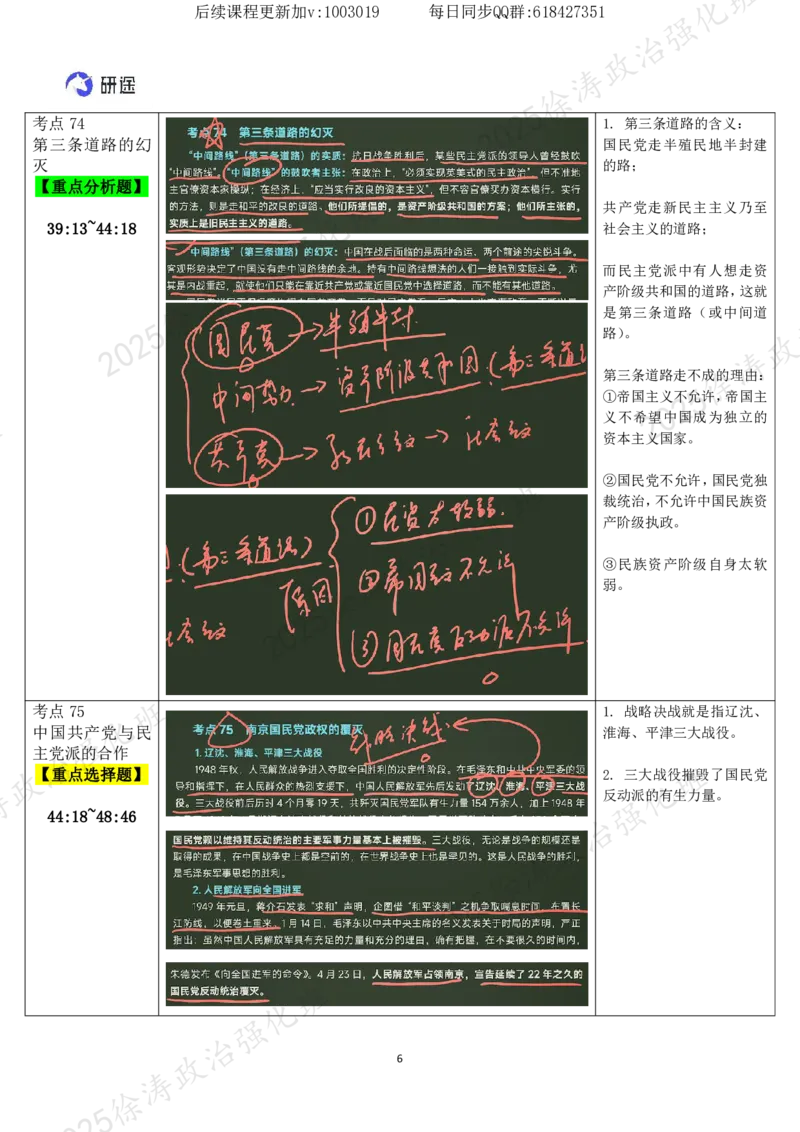 后续课程更新加v:1003019 每日同步QQ群:618427351
研途
考点 74
第三条道路的幻
灭
【重点分析题】
39:13~44:18
考点 74 第三条道路的幻灭
“中间路线”(第三条道路)的实质：抗日战争胜利后，某些民主党派的领导人曾经鼓吹
“中间路线”。“中间路线”的鼓吹者主张：在政治上，“必须实现英美式的民主政治”，但不准地
主官僚资本家操纵；在经济上，“应当实行改良的资本主义”，但不容官僚买办资本横行。实行
的方法，则是走和平的改良的道路。他们所提倡的，是资产阶级共和国的方案；他们所主张的，
实质上是旧民主主义的道路。
中间路线”(第三条道路)的幻灭：中国在战后面临的是两种命运、两个前途的尖锐斗争。
客观形势决定了中国没有走中间路线的余地。持有中间路线想法的人们一接触到实际斗争，尤
其是内战重起，就使他们只能在靠近共产党或靠近国民党中选择道路，而不能有其他道路。
国民党→半殖半封
中间势力→资产阶级共和国(第三条道路
共产党→新民主主义→社会主义
(第三条道路)
社会主义
原因
①民资太软弱
②帝国主义不允许
③国民党反动派不允许
1. 第三条道路的含义：
国民党走半殖民地半封建
的路；
共产党走新民主主义乃至
社会主义的道路；
而民主党派中有人想走资
产阶级共和国的道路，这就
是第三条道路（或中间道
路）。
第三条道路走不成的理由：
①帝国主义不允许，帝国主
义不希望中国成为独立的
资本主义国家。
②国民党不允许，国民党独
裁统治，不允许中国民族资
产阶级执政。
③民族资产阶级自身太软
弱。
考点 75
中国共产党与民
主党派的合作
【重点选择题】
44:18~48:46
考点 75 南京国民党政权的覆灭
战略决战
1. 辽沈、淮海、平津三大战役
1948 年秋，人民解放战争进入夺取全国胜利的决定性阶段。在毛泽东和中共中央军委的领
导和指挥下，在人民群众的热烈支援下，中国人民解放军先后发动了辽沈、淮海、平津三大战
役。三大战役前后历时 4 个月零 19 天，共歼灭国民党军队有生力量 154 万余人，加上 1948 年
国民党赖以维持其反动统治的主要军事力量基本上被摧毁。三大战役，无论是战争的规模还是
取得的成果，在中国战争史上都是空前的，在世界战争史上也是罕见的。这是人民战争的胜利，
是毛泽东军事思想的胜利。
2. 人民解放军向全国进军
1949 年元旦，蒋介石发表“求和”声明，企图借“和平谈判”之机争取喘息时间，布置长
江防线，以便卷土重来。1 月 14 日，毛泽东以中共中央主席的名义发表关于时局的声明，严正
指出：虽然中国人民解放军具有充足的力量和充分的理由，确有把握，在不要很久的时间内，
朱德发布《向全国进军的命令》。4 月 23 日，人民解放军占领南京，宣告延续了 22 年之久的
国民党反动统治覆灭。
1. 战略决战就是指辽沈、
淮海、平津三大战役。
2. 三大战役摧毁了国民党
反动派的有生力量。
6
2025徐涛政治强化班